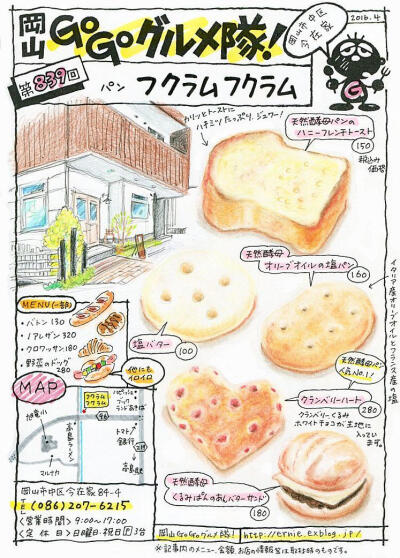 岡山 GOGOグルメ隊!
岡山市中区
今在家
2016.4
第839回
パン フクラムフクラム
カリッとトーストに
ハチミツたっぷり、ジュワー!
天然酵母パンの
ハニーフレンチトースト
150
税込み
価格
天然酵母
オリーブオイルの塩パン
160
イタリア産オリーブオイルとフランス産の塩
塩バター
100
MENU(一部)
・バトン 130
・ノアレザン 320
・クロワッサン 180
・野菜のドッグ
280
他にも
イロイロ
天然酵母パン
人気No.1!
クランベリーハート
280
クランベリーくるみ
ホワイトチョコが生地に
入っています。
MAP
フクラム
フクラム
ハピッシュ
ブック
ランドあきば
旭竜小
高島ラーメン
96
トマト
銀行
219
マルナカ
高島駅
天然酵母
くるみぱんのあんバターサンド
180
岡山市中区今在家84-4
TEL (086)207-6215
<営業時間> 9:00~17:00
<定休日> 日曜日・祝日 P3台
岡山GOGOグルメ隊! http://ernie.exblog.jp/
※記事内のメニュー、金額、お店の情報等は取材時のものです。